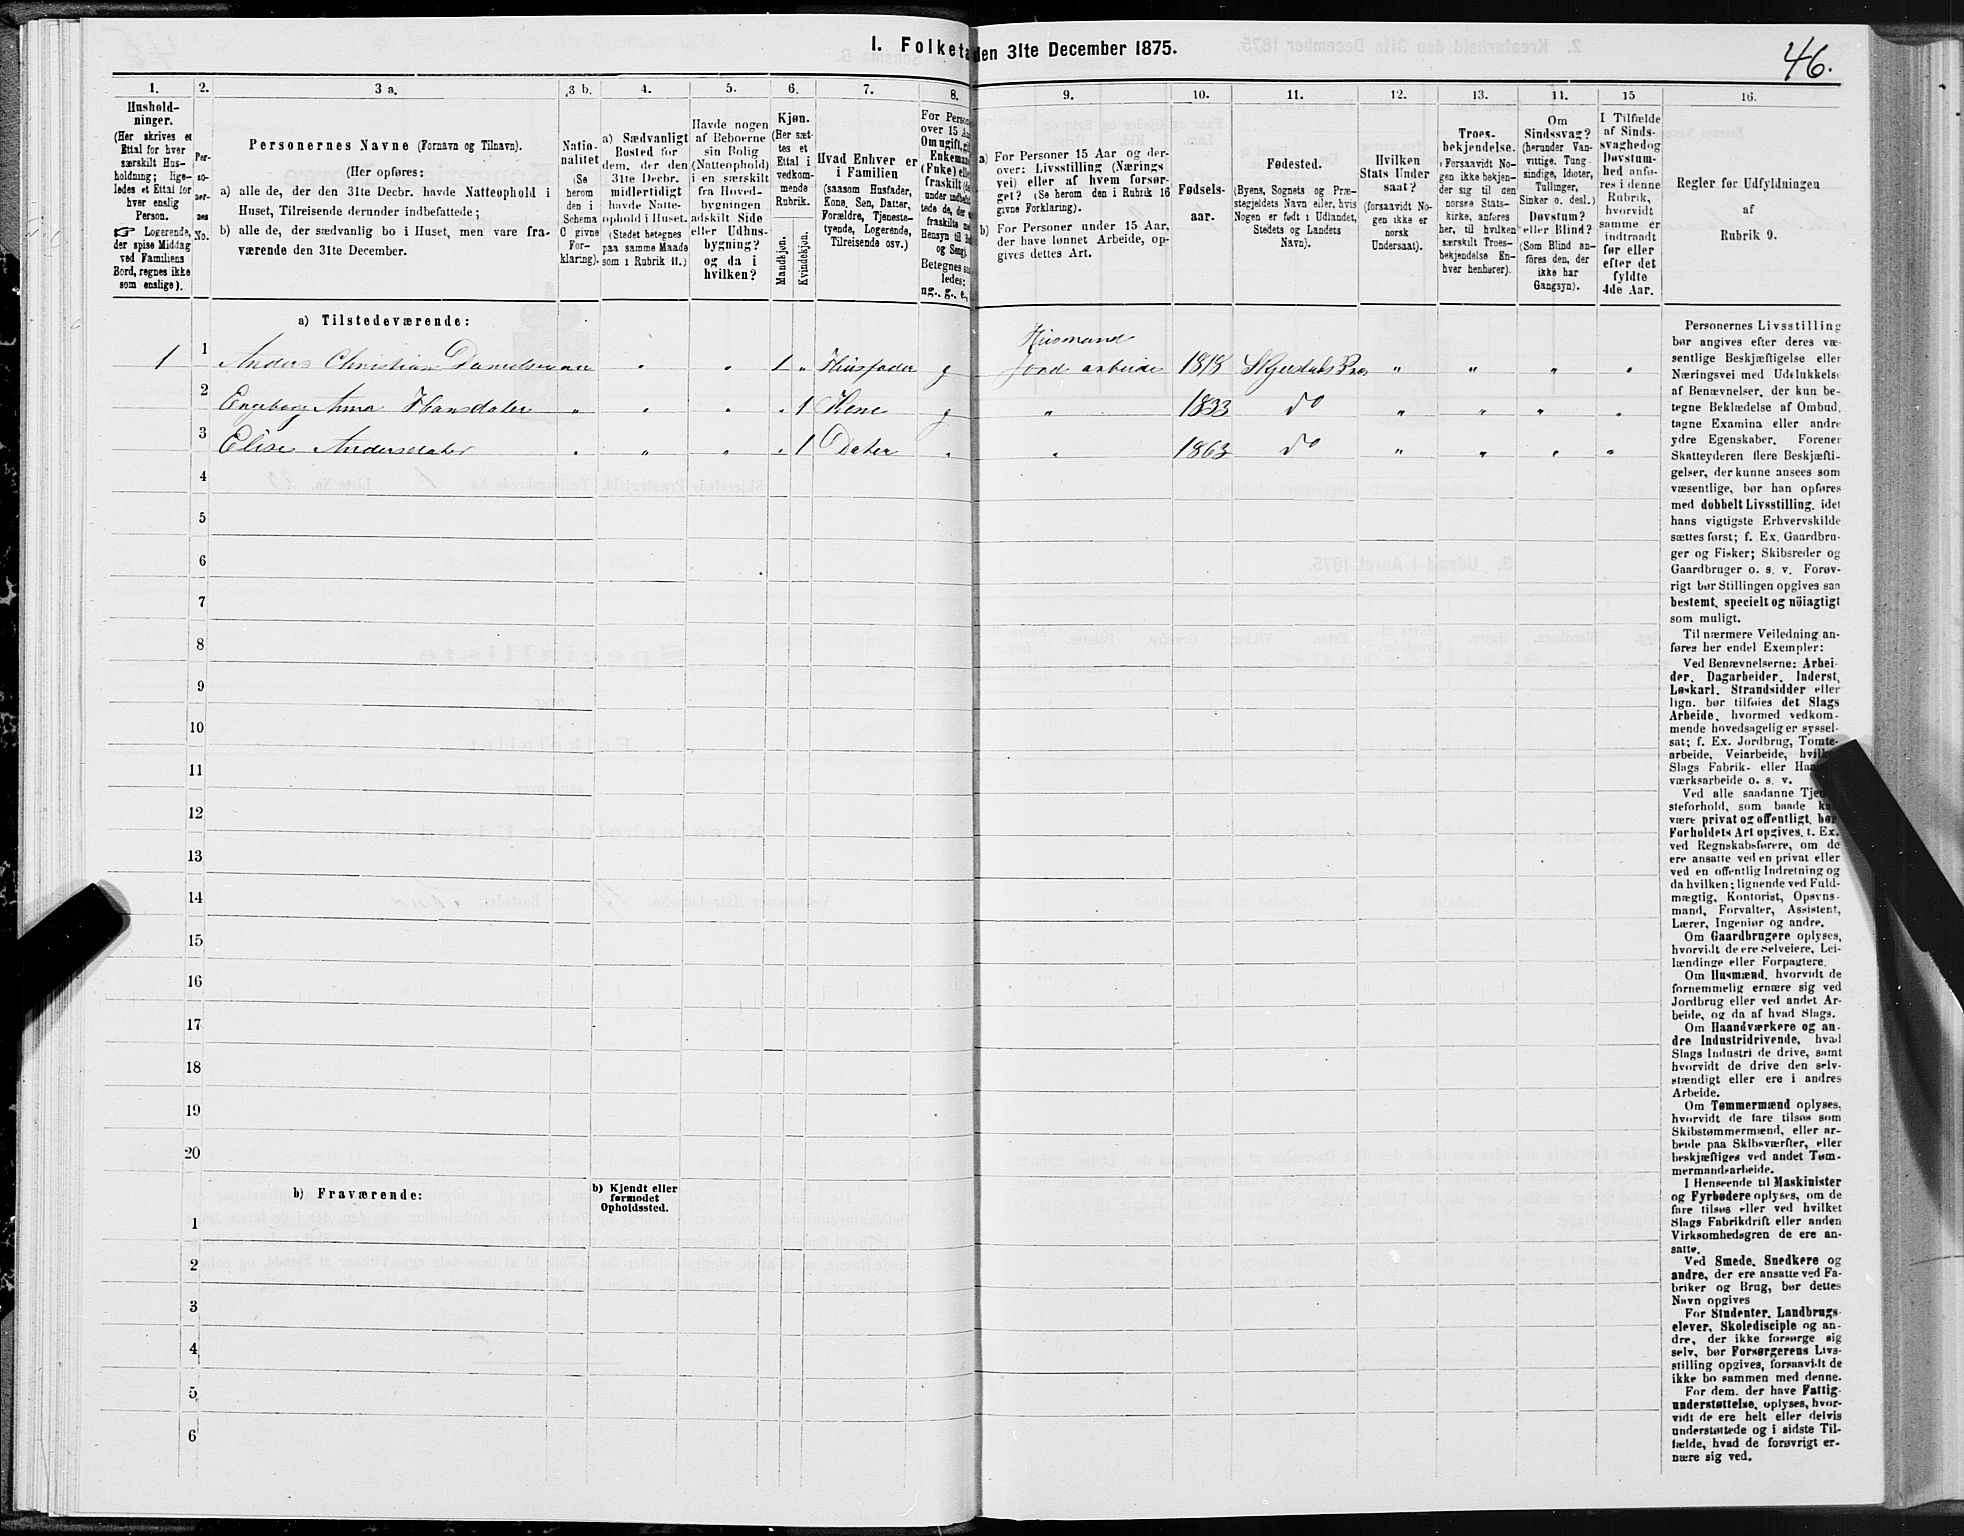 46.
I. Folketa den 31te December 1875.
1.
Hushold-
ninger.
(Her skrives et
Ettal for hver
særskilt Hus-
holdning; lige-
ledes et Ettal for
hver enslig
Person.
☞ Logerende,
der spise Middag
ved Familiens
Bord, regnes ikke
som enslige).
2.
Per-
so-
ner-
nes
No.
3 a.
Personernes Navne (Fornavn og Tilnavn).
(Her opføres:
a) alle de, der den 31te Decbr. havde Natteophold i
Huset, Tilreisende derunder indbefattede;
b) alle de, der sædvanlig bo i Huset, men vare fra-
værende den 31te December.
3 b.
Natio-
nalitet
(Se
herom
den i
Schema
C givne
For-
klaring).
4.
a) Sædvanligt
Bosted for
dem, der den
31te Decbr.
midlertidigt
havde Natte-
ophold i Huset.
(Stedet betegnes
paa samme Maade
som i Rubrik 11.)
5.
Havde nogen
af Beboerne
sin Bolig
(Natteophold)
i en særskilt
fra Hoved-
bygningen
adskilt Side
eller Udhus-
bygning?
og da i
hvilken?
6.
Kjøn.
(Her sæt-
tes et
Ettal i
vedkom-
mende
Rubrik.
Mandkjøn.
Kvindekjøn.
7.
Hvad Enhver er
i Familien
(saasom Husfader,
Kone, Søn, Datter,
Forældre, Tjeneste-
tyende, Logerende,
Tilreisende osv.)
8.
For Person
over 15 Aa
Om ugift, gif
Enkeman
(Enke) elle
fraskilt (de
under indbefat
tede de, der e
fraskilte me
Hensyn til Bo
og Seng).
Betegnes saa
ledes:
ug., g., e.,
9.
a) For Personer 15 Aar og der-
over: Livsstilling (Nærings-
vei) eller af hvem forsør-
get? (Se herom den i Rubrik 16
givne Forklaring).
b) For Personer under 15 Aar,
der have lønnet Arbeide, op-
gives dettes Art.
10.
Fødsels-
aar.
11.
Fødested.
(Byens, Sognets og Præ-
stegjeldets Navn eller, hvis
Nogen er født i Udlandet,
Stedets og Landets
Navn).
12.
Hvilken
Stats Under
saat?
(forsaavidt No-
gen ikke er
norsk
Undersaat).
13.
Troes-
bekjendelse.
(Forsaavidt No-
gen ikke bekjen-
der sig til den
norske Stats-
kirke, anføres
her, til hvilken
særskilt Troes-
bekjendelse En-
hver henhører).
14.
Om
Sindssvag?
(herunder Van-
vittige, Tung-
sindige, Idioter,
Tullinger,
Sinker o. desl.)
Døvstum?
eller Blind?
(Som Blind an-
føres den, der
ikke har
Gangsyn).
15
I Tilfælde
af Sinds-
svaghedog
Døvstum-
hed anfø-
res i denne
Rubrik,
hvorvidt
samme er
indtraadt
før eller
efter det
fyldte
4de Aar.
16.
Regler for Udfyldningen
af
Rubrik 9.
a) Tilstedeværende:
Husmand
1 1 Anders Christian Danielsen nn " " 1 " Husfader g Jord arbeide 1818 Skjerstads Præs " " " "
2 Engeborg Anna Hansdater " " " " 1 Kone g " 1833 do " " " "
3 Elise Andersdater " " " " 1 Dater " " 1863 do " " " "
4
5
6
7
8
9
10
11
12
13
14
15
16
17
18
19
20
b) Fraværende:
b) Kjendt eller
formodet
Opholdssted.
1
2
3
4
5
6
Personernes Livsstilling
bør angives efter deres væ-
sentlige Beskjæftigelse eller
Næringsvei med Udelukkelse
af Benævnelser, der kun be-
tegne Beklædelse af Ombud,
tagne Examina eller andre
ydre Egenskaber. Forener
Skatteyderen flere Beskjæfti-
gelser, der kunne ansees som
væsentlige, bør han opføres
med dobbelt Livsstilling, idet
hans vigtigste Erhvervskilde
sættes først; f. Ex. Gaardbru-
ger og Fisker; Skibsreder og
Gaardbruger o. s. v. Forøv-
rigt bør Stillingen opgives saa
bestemt, specielt og nöiagtigt
som muligt.
Til nærmere Veiledning an-
føres her endel Exempler:
Ved Benævnelserne: Arbei-
der, Dagarbeider, Inderst,
Løskarl, Strandsidder eller
lign. bør tilføies det Slags
Arbeide, hvormed vedkom-
mende hovedsagelig er syssel-
sat; f. Ex. Jordbrug, Tomte-
arbeide, Veiarbeide, hvilket
Slags Fabrik- eller Haand-
værksarbeide o. s. v.
Ved alle saadanne Tjene-
steforhold, som baade kan
være privat og offentligt, bør
Forholdets Art opgives, t. Ex.
ved Regnskabsførere, om de
ere ansatte ved en privat eller
ved en offentlig Indretning og
da hvilken; lignende ved Fuld-
mægtig, Kontorist, Opsyns-
mand, Forvalter, Assistent,
Lærer, Ingeniør og andre.
Om Gaardbrugere oplyses,
hvorvidt de ere Selveiere, Lei-
lændinge eller Forpagtere.
Om Husmænd, hvorvidt de
fornemmelig ernære sig ved
Jordbrug eller ved andet Ar-
beide, og da af hvad Slags.
Om Haandværkere og an-
dre Industridrivende, hvad
Slags Industri de drive, samt
hvorvidt de drive den selv-
stændigt eller ere i andres
Arbeide.
Om Tømmermænd oplyses,
hvorvidt de fare tilsøs som
Skibstømmermænd, eller ar-
beide paa Skibsværfter, eller
beskjæftiges ved andet Tøm-
mermandsarbeide.
I Henseende til Maskinister
og Fyrbødere oplyses, om de
fare tilsøs eller ved hvilket
Slags Fabrikdrift eller anden
Virksomhedsgren de ere an-
satte.
Ved Smede, Snedkere og
andre, der ere ansatte ved Fa-
briker og Brug, bør dettes
Navn opgives
For Studenter, Landbrugs-
elever, Skoledisciple og an-
dre, der ikke forsørge sig
selv, bør Forsørgerens Livs-
stilling opgives, forsaavidt de
ikke bo sammen med denne.
For dem, der have Fattig-
understøttelse, oplyses, hvor-
vidt de ere helt eller delvis
understøttede og i sidste Til-
fælde, hvad de forøvrigt er-
nære sig ved.